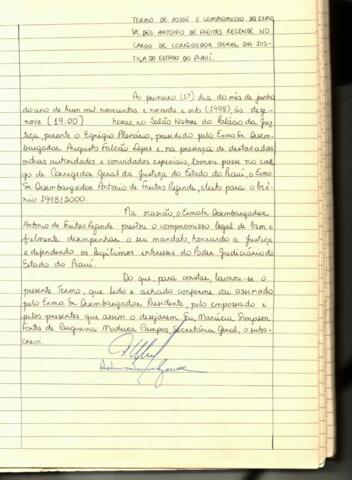 TERMO DE POSSE E COMPROMISSO DO EXMO.
SR. DES. ANTONIO DE FREITAS REZENDE NO
CARGO DE CORREGEDOR GERAL DA JUS-
TIÇA DO ESTADO DO PIAUÍ.
Ao primeiro (1º) dia do mês de junho
do ano de hum mil novecentos e noventa e oito (1998), às deze-
nove (19:00) horas, no Salão Nobre do Palácio da Jus
tiça, perante o Egrégio Plenário, presidido pelo Exmo Sr Desem-
bargador Augusto Falcão Lopes e, na presença de destacadas
outras autoridades e convidados especiais, tomou posse no car
go de Corregedor Geral da Justiça do Estado do Piauí, o Exmo
Sr Desembargador Antonio de Freitas Rezende, eleito para o biê
nio 1998/2000.
Na ocasião, o Exmo Sr Desembargador
Antonio de Freitas Rezende prestou o compromisso legal de bem e
fielmente desempenhar o seu mandato, honrando a Justiça
e defendendo os legítimos interesses do Poder Judiciário do
Estado do Piauí.
Do que, para constar, lavrou-se o
presente Termo, que lido e achado conforme vai assinado
pelo Exmo Sr Desembargador Presidente, pelo empossado e
pelos presentes que assim o desejarem. Eu, Marúcia Simpson
Fortes de Cerqueira Madeira Campos, Secretária Geral, o subs-
crevi.